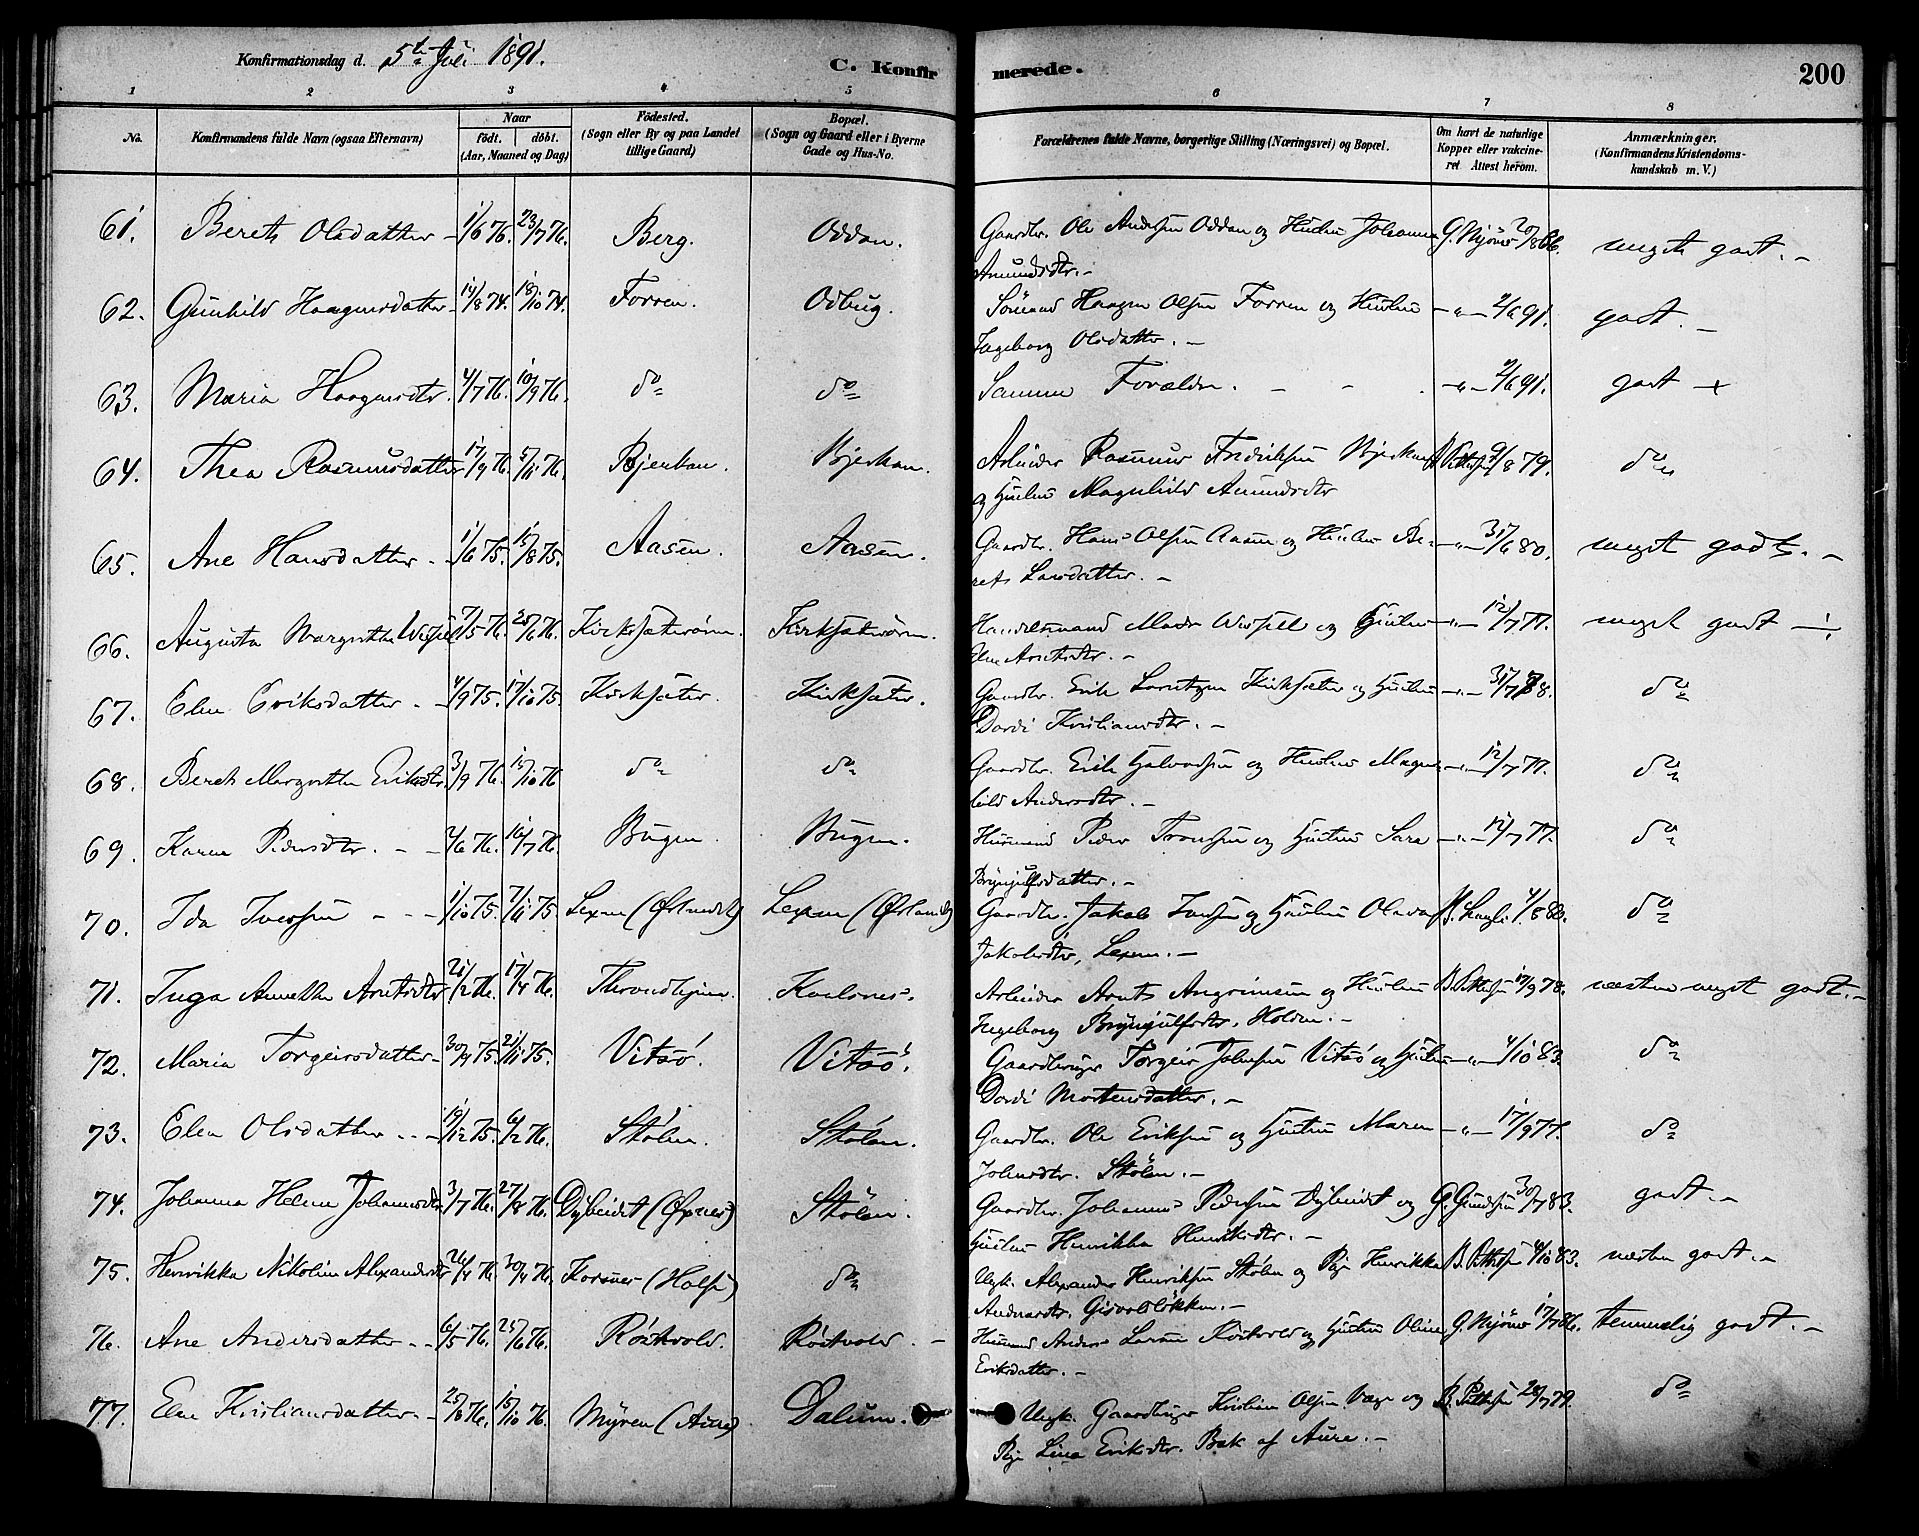 Konfirmationsdag d. 5te Juli 1891.
C. Konfirmerede.
200
1 2 3 4 5 6 7 8
No.
Konfirmandens fulde Navn (ogsaa Efternavn)
Naar
født. døbt.
(Aar, Maaned og Dag)
Födested.
(Sogn eller By og paa Landet
tillige Gaard)
Bopæl.
(Sogn og Gaard eller i Byerne
Gade og Hus-No.
Forældrenes fulde Navne, borgerlige Stilling (Næringsvei) og Bopæl.
Om havt de naturlige
Kopper eller vakcine-
ret Attest herom.
Anmærkninger.
(Konfirmandens Kristendoms-
kundskab m. V.)
61. Beret Olsdatter - 1/6 76. 23/7 76. Berg. Oddan. Gaardbr. Ole Andersen Oddan og Hustru Johanna G. Mjönes 20/8 86. meget godt. -
Amundsdtr. -
62. Gunhild Haagensdatter - 14/8 74. 18/10 74. Forren. Odbug. Haagen Olsen Forren og Hustru - " - 2/6 91. godt. -
Ingeborg Olsdatter. -
63. Maria Haagensdtr. 4/7 76. 10/9 76. do do Samme Forældre. - - - " - 2/6 91. godt
64. Thea Rasmusdatter 17/9 76. 5/11 76. Bjerkan. Bjerkan. Arbeider Rasmus Fredriksen Bjerkan 9/8 79. do
og Hustru Magnhild Amundsdtr
65. Ane Hansdatter - 1/6 75. 15/8 75. Aasen. Aasen. Gaardbr. Hans Olsen Aasen og Hustru Be- - " - 31/6 80. meget godt. -
ret Larsdatter. -
66. Augusta Margrethe Wessel 7/5 76. 25/6 76. Kirksæterörn. Kirksæterörn. Handelsmand Mads Wessel og Hustru - " - 12/7 77. meget godt
Arntsdtr. -
67. Elen Eriksdatter - 4/9 75. 17/10 75. Kirksæter. Kirksæter. Gaardbr. Erik Lorntzen Kirksæter og Hustru - " - 31/7 88. do
Dordi Kristiansdtr. -
68. Beret Margrethe Eriksdtr. 3/9 76. 15/10 76 do do Gaardbr. Erik Halvorsen og Hustru Magn- - " - 12/7 77. do
hild Andersdtr. -
69. Karen Pedersdtr. - - 2/6 76. 16/7 76. Bugen. Bugen. Husmand Peder Tronsen og Hustru Sara - " - 12/7 77. do
Brynjulfsdatter. -
70. Ida Iversen - - - 1/10 75. 7/11 75 Lexen (Ørlandet) Lexen (Ørlandet) Gaardbr. Jakob og Hustru 4/8 80. do
Jakobsdtr, Lexen. -
71. Inga Annette Arntsdtr 21/2 76. 17/4 76. Throndhjem. Karlsnes. Arbeider Arnt Angrimsen og Hustru B. Pettersen 17/9 78. næsten meget godt. -
Ingeborg Brynjulfsdtr. Holden. -
72. Maria Torgeirsdatter - 30/9 75. 21/11 75. Vitsö. Vitsö. Gaardbruger Torgeir Johnsen Vitsö og Hustru - " - 4/10 83. do
Dordi Mortensdatter. -
73. Elen Olsdatter - - - 19/12 75. 6/2 76. Stölen. Stölen. Gaardbr. Ole Eriksen og Hustru Maren - " - 17/9 77. do
Johnsdtr. Stölen. -
74. Johanna Helene Johannesdtr 3/7 76. 27/8 76. Dybeidet (Øxnes) Stölen. Gaardbr. Johannes Pedersen Dybeidet og G. Gundersen 30/7 83. godt. -
Hustru Henrikka Henriksdtr. -
75. Henrikka Nikoline Alexandersdtr 21/4 76. 30/4 76. Korsnes (Halse) do Ugk. Alexander Henriksen Stölen og Pige Henrikka B. Pettersen 4/10 83. næsten godt. -
Gisvoldlökken. -
76. Ane Andersdatter - - 6/5 76. 25/6 76. Röstvold. Röstvold. - Husmand Anders Larsen Röstvold og Hustru Oline G. Mjönes 17/7 86. temmelig godt. -
Eriksdatter. -
77. Elen Kristiansdatter - - 25/8 76. 15/10 76. Myren (Aure). Dalum. Ugk. Gaardbruger Kristian Olsen Vaag og B. Pettersen 28/7 79. do
Pige Lina Eriksdtr. Bak af Aure. -